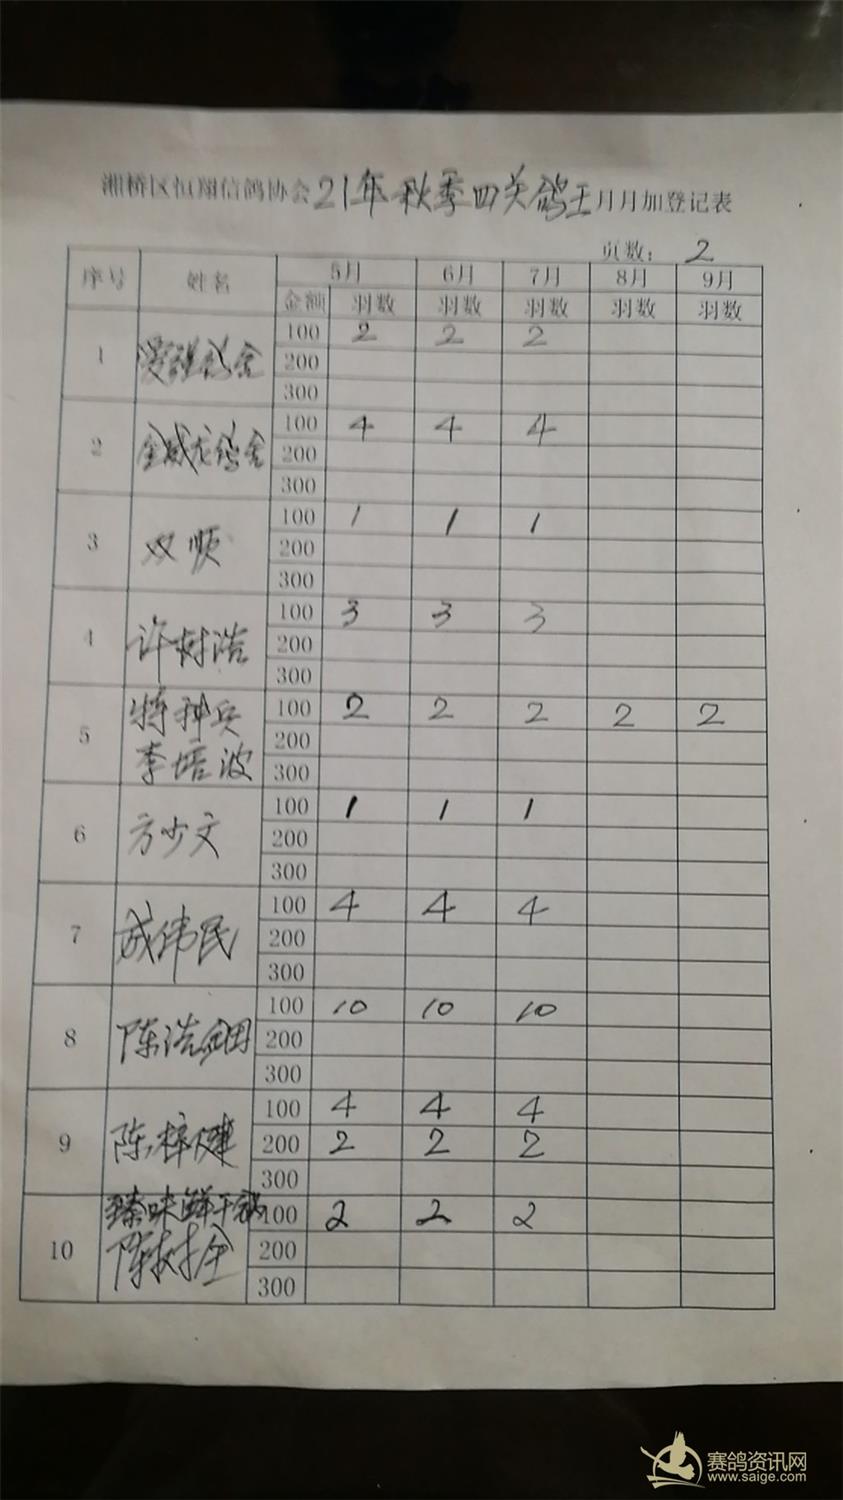 湘桥区恒翔信鸽协会21年秋季四关鸽王月月加登记表
页数: 2
序号 姓名 5月 6月 7月 8月 9月
金额 羽数 羽数 羽数 羽数 羽数
1 100 2 2 2
200
300
2 金威龙鸽舍 100 4 4 4
200
300
3 双顺 100 1 1 1
200
300
4 许树浩 100 3 3 3
200
300
5 特种兵 100 2 2 2 2 2
李培波 200
300
6 方少文 100 1 1 1
200
300
7 成伟民 100 4 4 4
200
300
8 陈浩 100 10 10 10
200
300
9 陈梓健 100 4 4 4
200 2 2 2
300
10 臻味鲜干锅 100 2 2 2
陈树全 200
300
赛鸽资讯网
www.saige.com